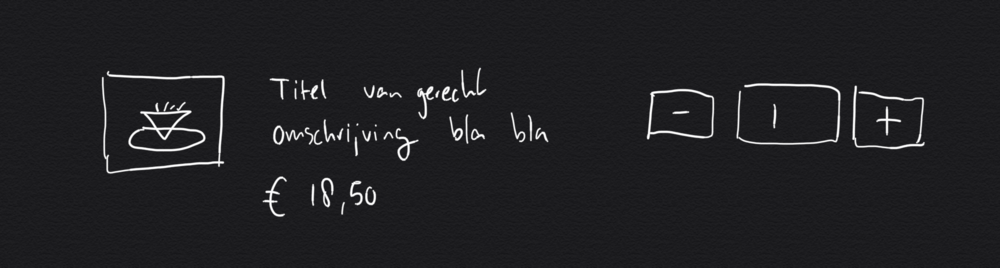 Titel van gerecht
omschrijving bla bla
€ 18,50
- 1 +